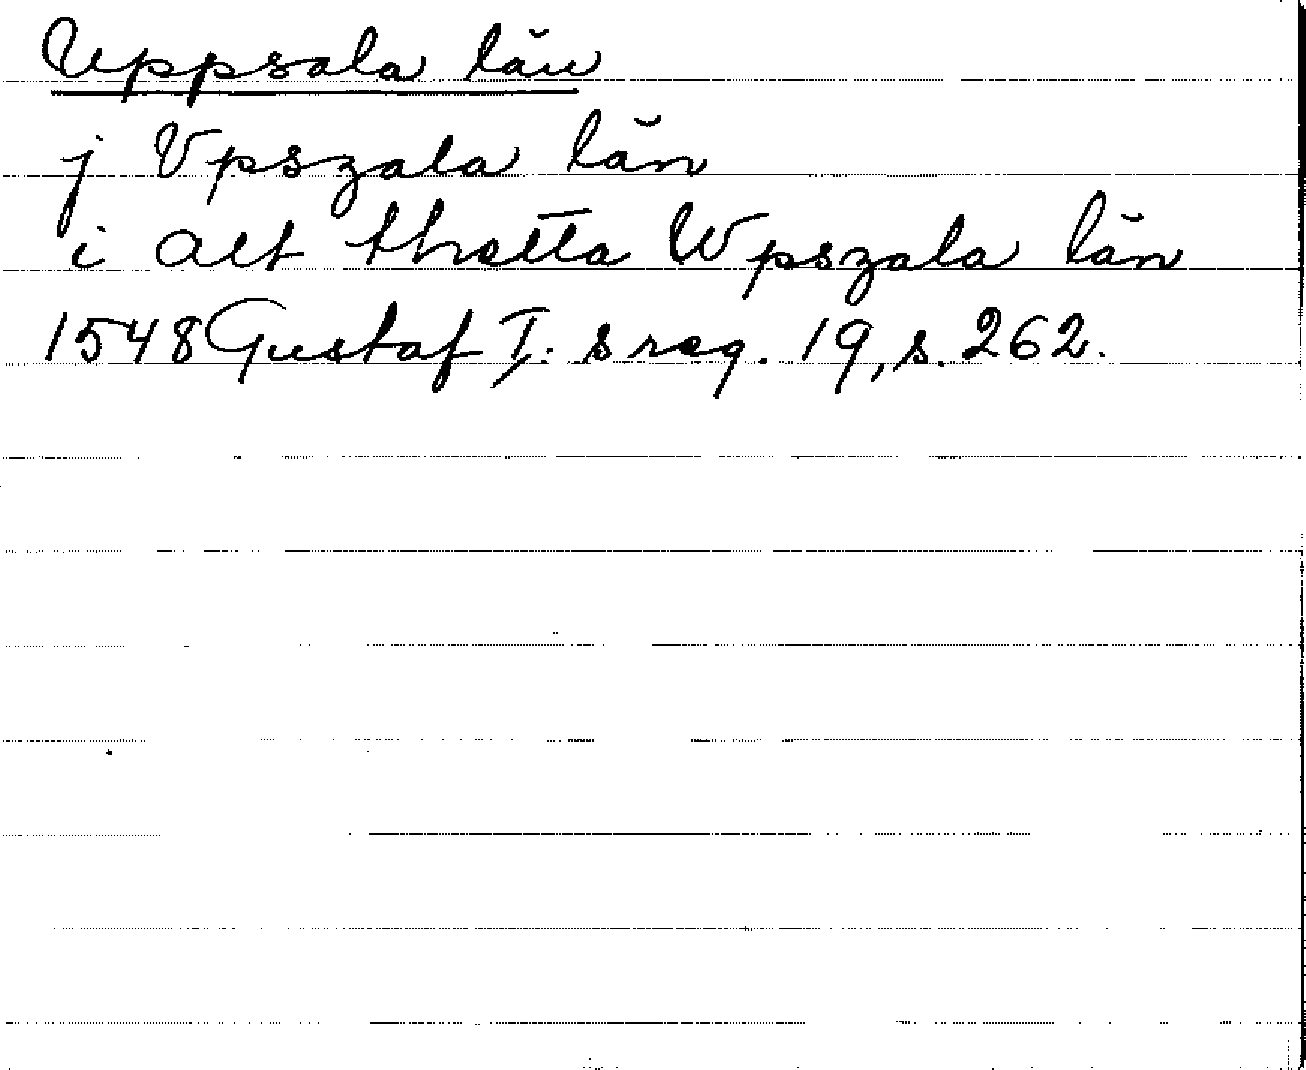 Uppsala län
j Vpszala län
i alt thetta Wpszala län
1548 Gustaf I: s reg. 19, s. 262.